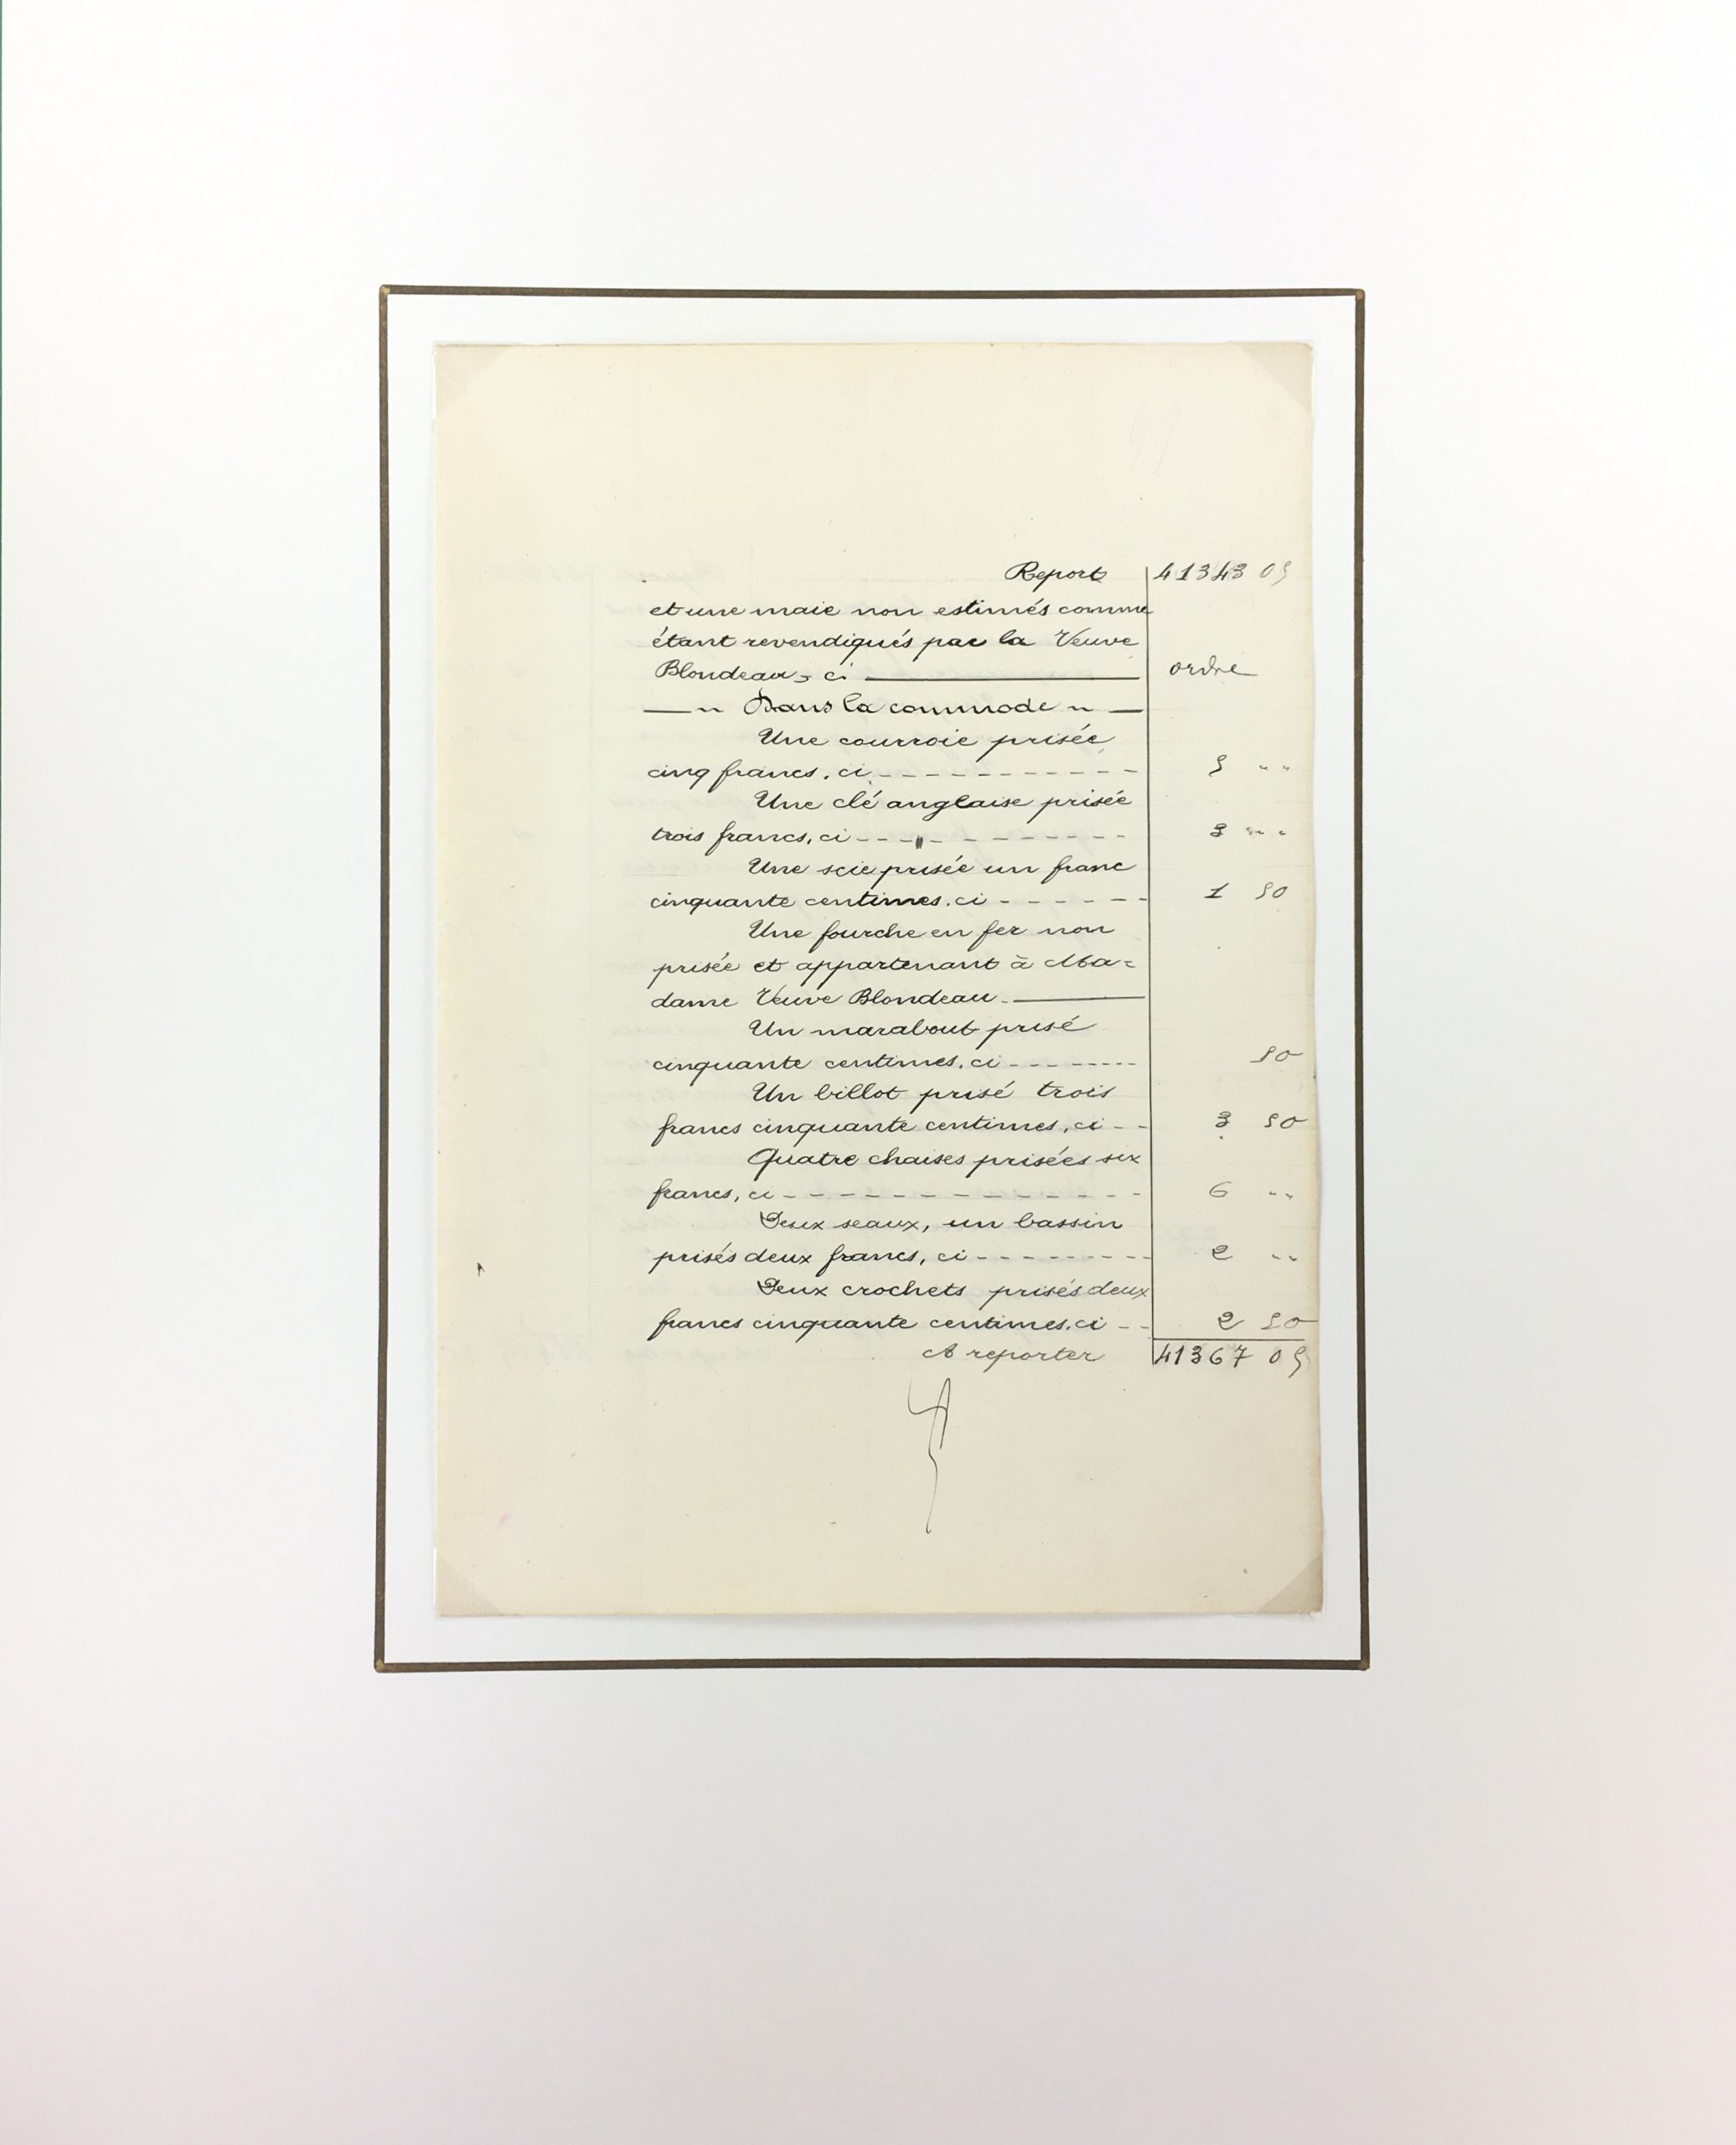 Report 41343 05
et une maie non estimés comme
étant revendiqués par la Veuve
Blondeau, ci ordre
—〃 Dans la commode 〃—
Une courroie prisée
cinq francs, ci - - - - - - - - - - - 5 〃
Une clé anglaise prisée
trois francs, ci - - - - - - - - - - - 3 〃
Une scie prisée un franc
cinquante centimes, ci - - - - - - 1 50
Une fourche en fer non
prisée et appartenant à Ma=
dame Veuve Blondeau. ———
Un marabout prisé
cinquante centimes, ci - - - - - - - 50
Un billot prisé trois
francs cinquante centimes, ci - - 3 50
Quatre chaises prisées six
francs, ci - - - - - - - - - - - - - 6 〃
Deux seaux, un bassin
prisés deux francs, ci - - - - - - - - 2 〃
Deux crochets prisés deux
francs cinquante centimes, ci - - 2 50
A reporter 41367 05